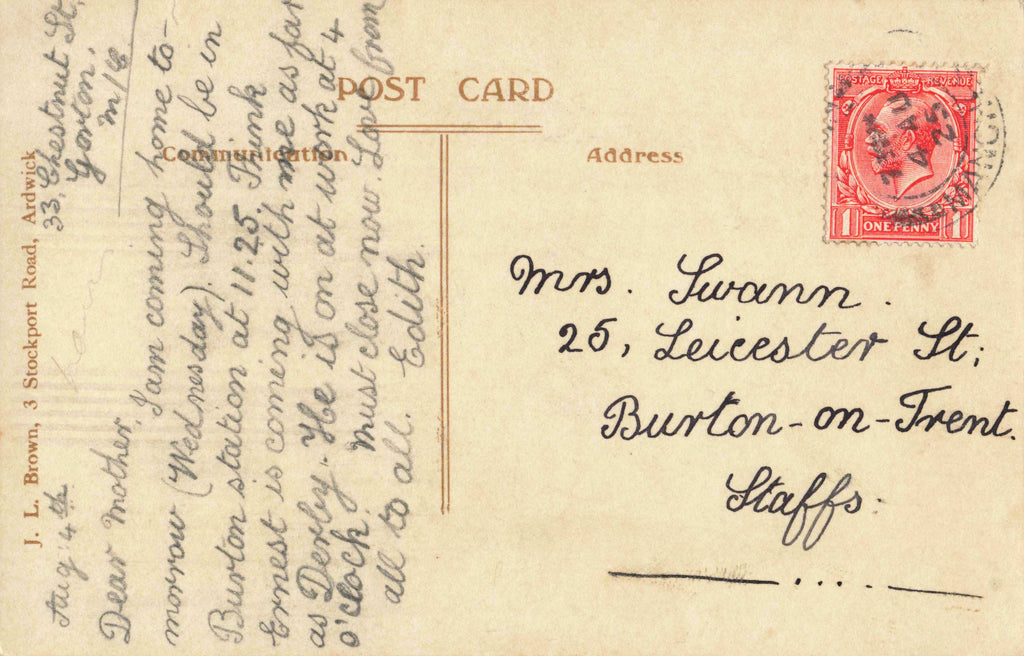 POST CARD
Communication
Address
J. L. Brown, 3 Stockport Road, Ardwick
33, Chestnut St.,
Gorton,
M/C
Aug 4th
Dear Mother,
I am coming home to-
morrow (Wednesday). Should be in
Burton station at 11.25. Think
Ernest is coming with me as far
as Derby. He is on at work at 4
o'clock. Must close now. Love from
all to all. Edith.
POSTAGE REVENUE
1 ONE PENNY 1
4 AU
25
Mrs. Swann.
25, Leicester St;
Burton-on-Trent.
Staffs.